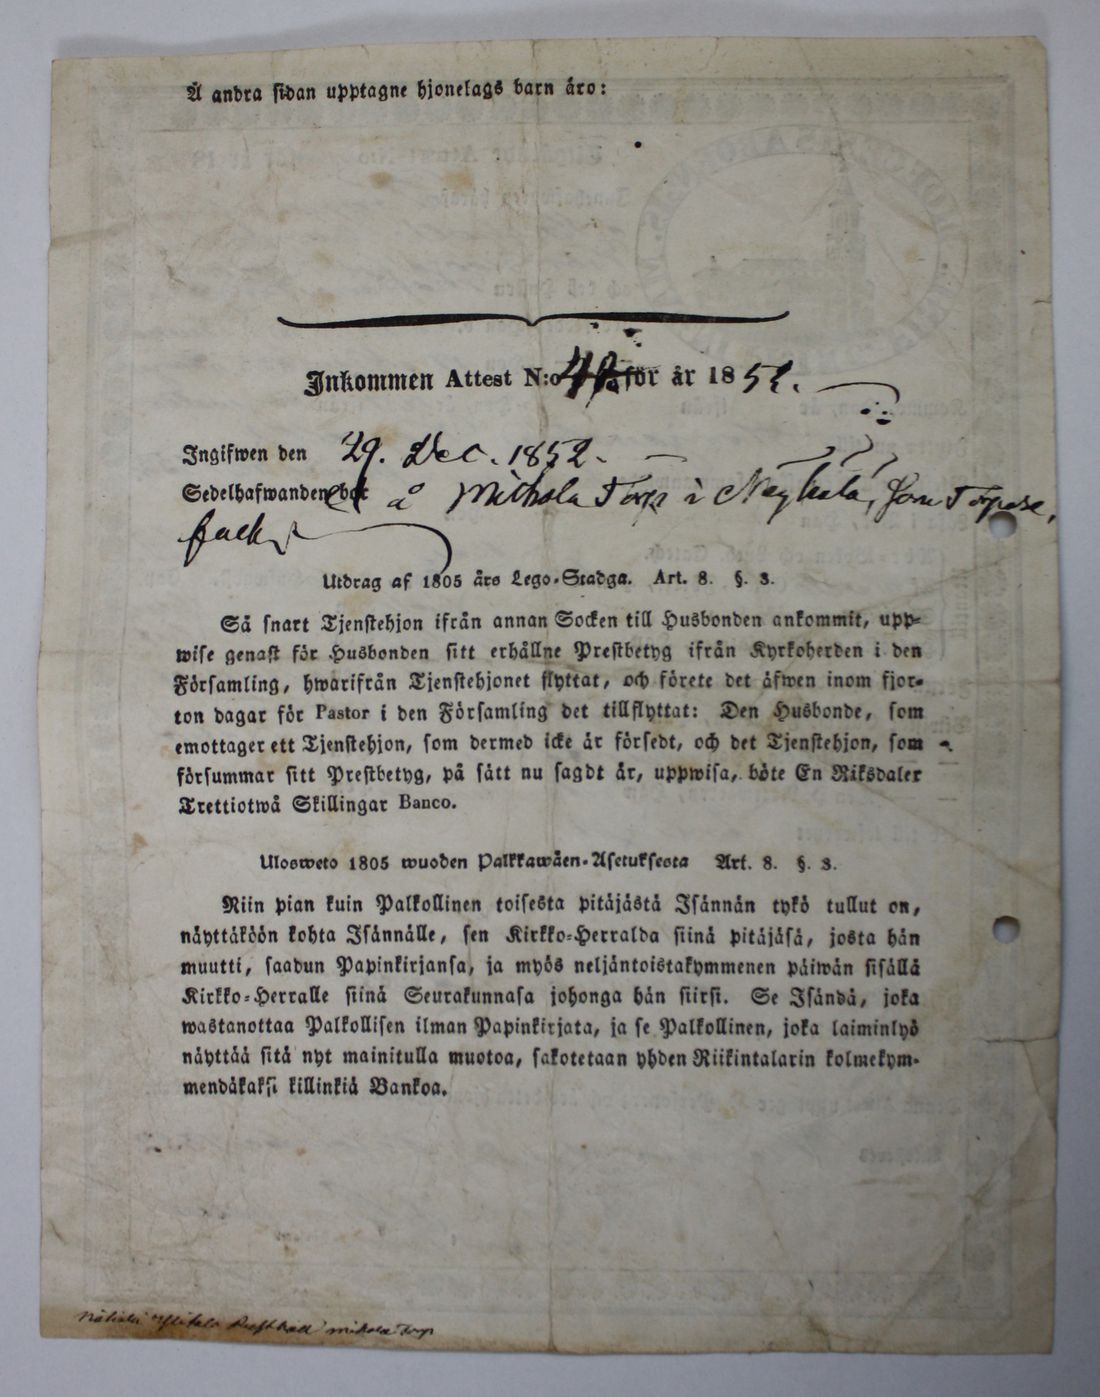 Å andra sidan upptagne hjonelags barn äro:
Inkommen Attest N:o för år 1852.
Ingifwen den 29. Dec. 1852.
Sedelhafwanden å Mikola Torp i
Utdrag af 1805 års Lego-Stadga. Art. 8. §. 3.
Så snart Tjenstehjon ifrån annan Socken till Husbonden ankommit, upp-
wise genast för Husbonden sitt erhållne Prestbetyg ifrån Kyrkoherden i den
Församling, hwarifrån Tjenstehjonet flyttat, och förete det äfwen inom fjor-
ton dagar för Pastor i den Församling det tillflyttat: Den Husbonde, som
emottager ett Tjenstehjon, som dermed icke är försedt, och det Tjenstehjon, som
försummar sitt Prestbetyg, på sätt nu sagdt är, uppwisa, böte En Riksdaler
Trettiotwå Skillingar Banco.
Ulosweto 1805 wuoden Palkkawäen-Asetuksesta Art. 8. §. 3.
Niin pian kuin Palkollinen toisesta pitäjästä Isännän tykö tullut on,
näyttäköön kohta Isännälle, sen Kirkko-Herralda siinä pitäjäsä, josta hän
muutti, saadun Papinkirjansa, ja myös neljäntoistakymmenen päiwän sisällä
Kirkko-Herralle siinä Seurakunnasa johonga hän siirsi. Se Isändä, joka
wastanottaa Palkollisen ilman Papinkirjata, ja se Palkollinen, joka laiminlyö
näyttää sitä nyt mainitulla muotoa, sakotetaan yhden Riikintalarin kolmekym-
mendäkaksi killinkiä Bankoa.
mikola Torp